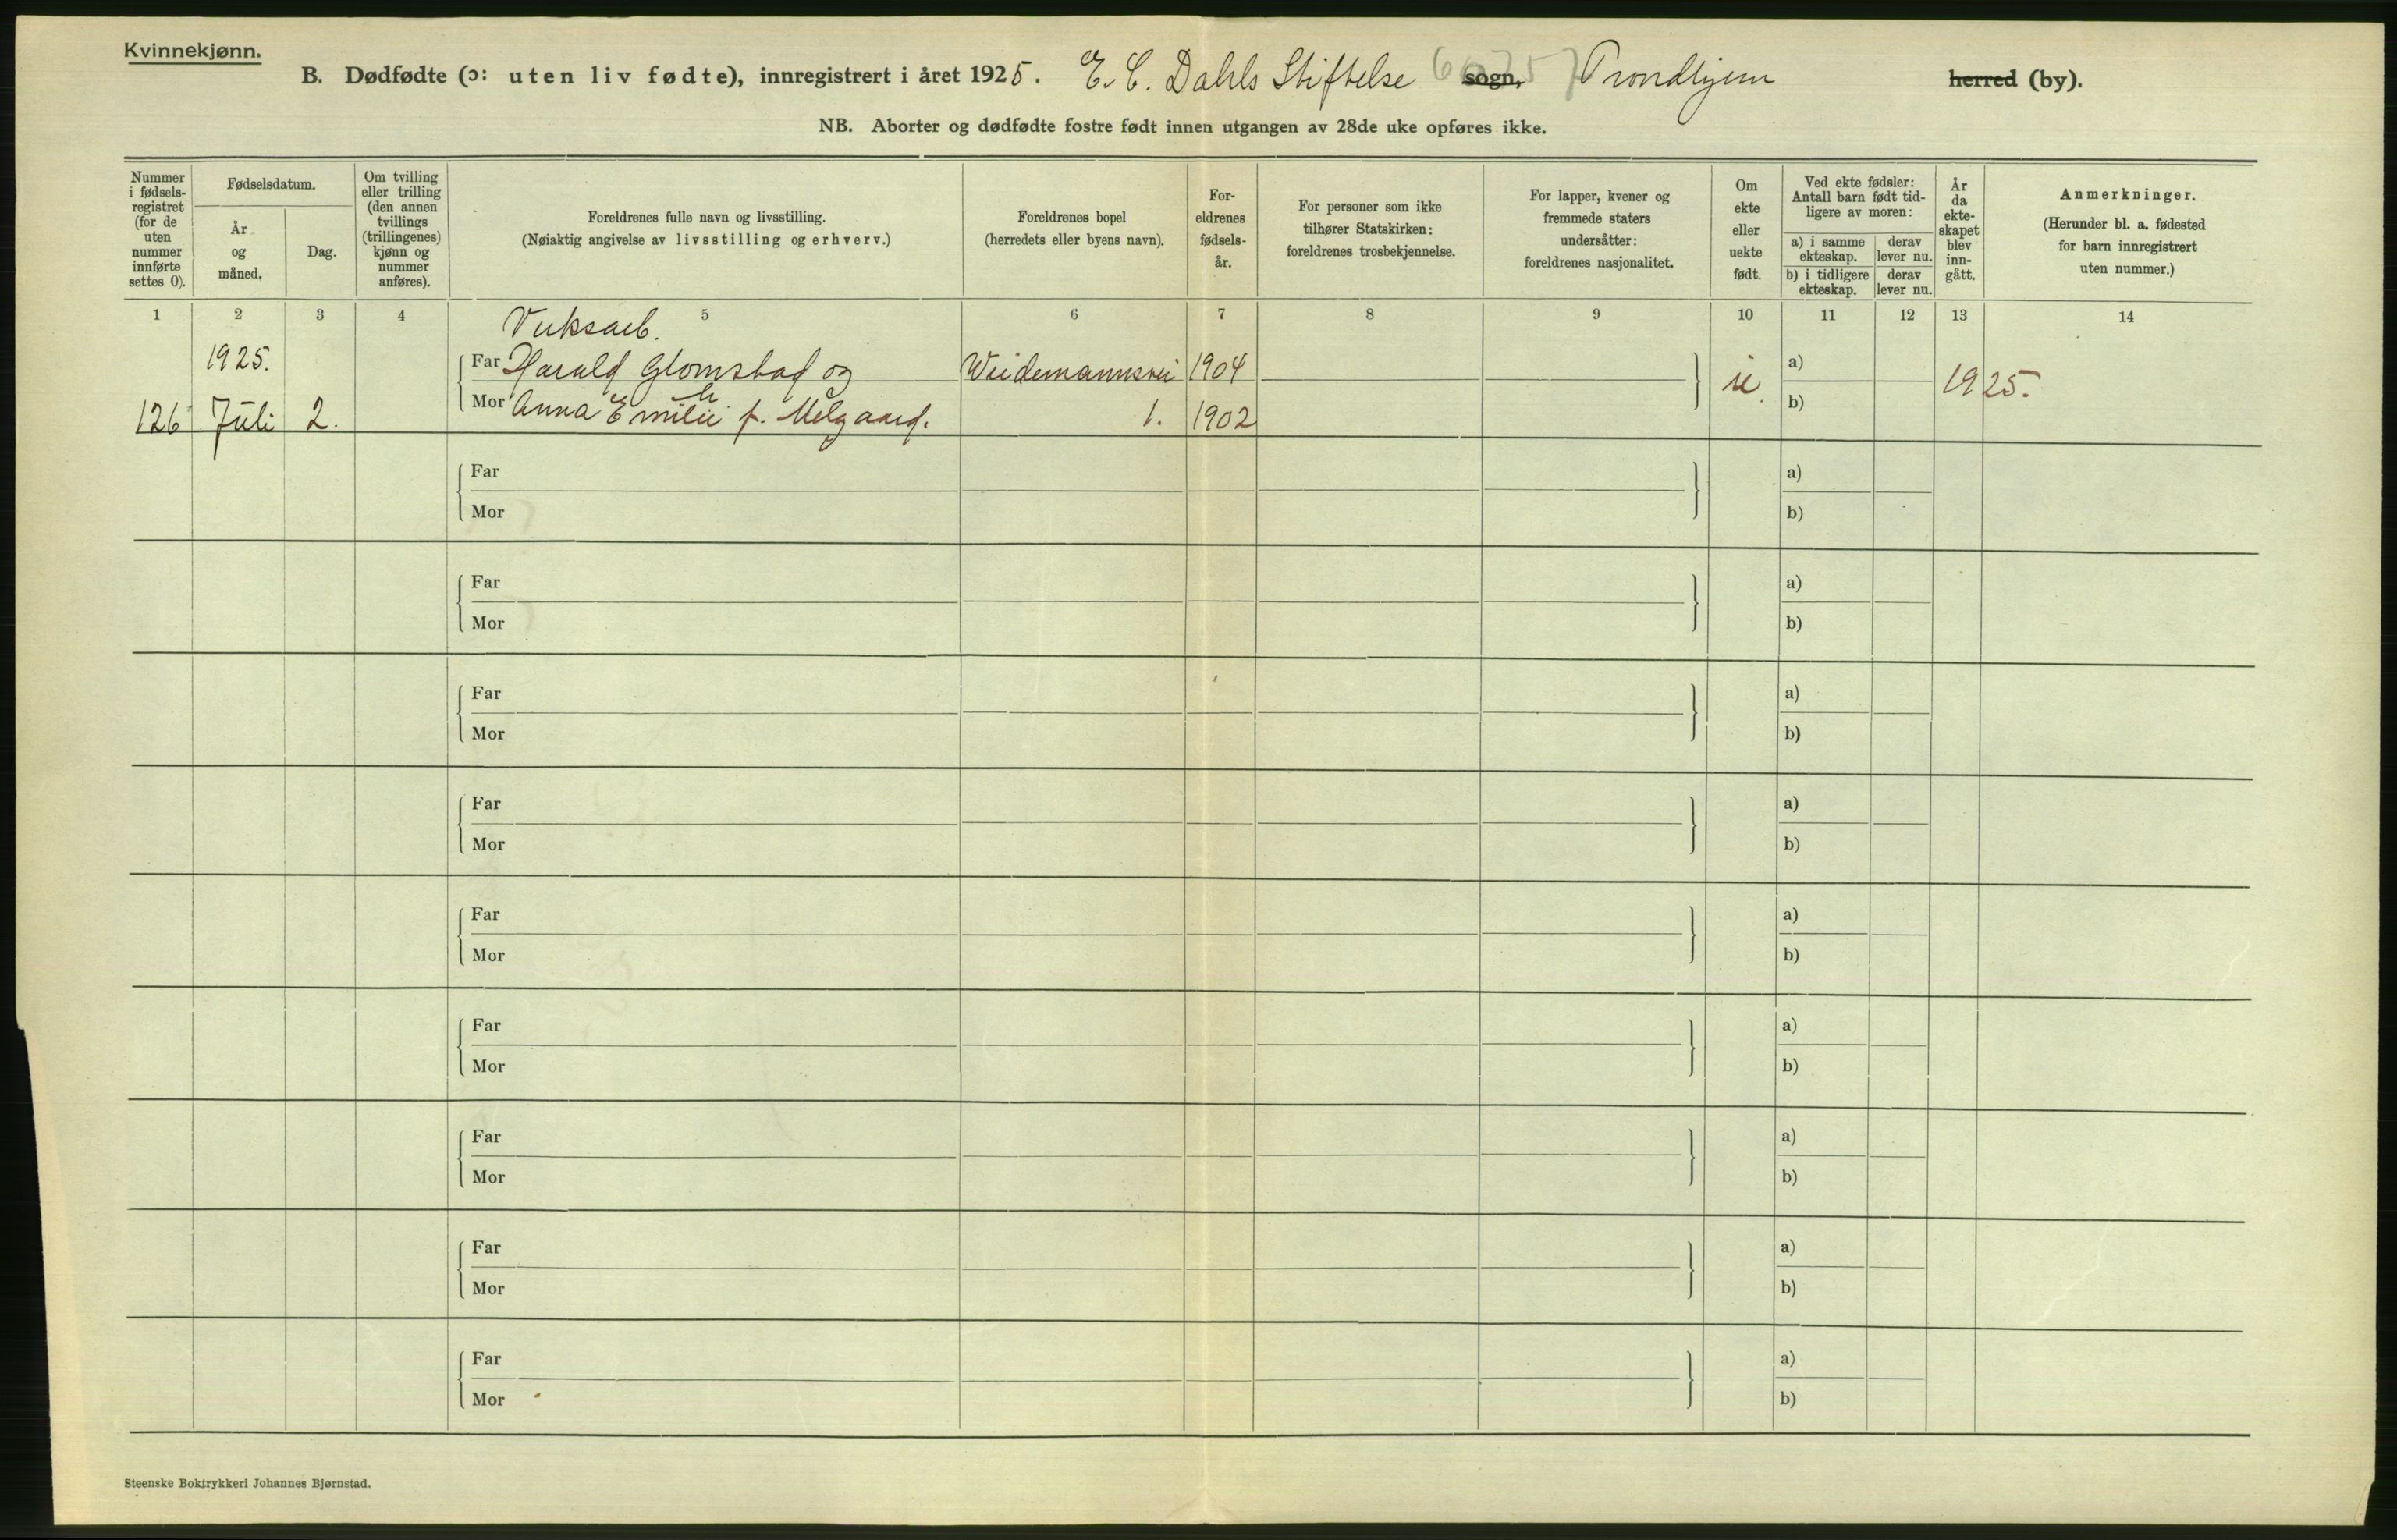 Kvinnekjønn.
B. Dødfødte (ɔ: uten liv fødte), innregistrert i året 1925. E. C. Dahls Stiftelse sogn, Trondhjem herred (by).
NB. Aborter og dødfødte fostre født innen utgangen av 28de uke opføres ikke.
Nummer
i fødsels-
registret
(for de
uten
nummer
innførte
settes 0).
Fødselsdatum.
År
og
måned.
Dag.
Om tvilling
eller trilling
(den annen
tvillings
(trillingenes)
kjønn og
nummer
anføres).
Foreldrenes fulle navn og livsstilling.
(Nøiaktig angivelse av livsstilling og erhverv.)
Foreldrenes bopel
(herredets eller byens navn).
For-
eldrenes
fødsels-
år.
For personer som ikke
tilhører Statskirken:
foreldrenes trosbekjennelse.
For lapper, kvener og
fremmede staters
undersåtter:
foreldrenes nasjonalitet.
Om
ekte
eller
uekte
født.
Ved ekte fødsler:
Antall barn født tid-
ligere av moren:
a) i samme
ekteskap.
derav
lever nu.
b) i tidligere
ekteskap.
derav
lever nu.
År
da
ekte-
skapet
blev
inn-
gått.
Anmerkninger.
(Herunder bl. a. fødested
for barn innregistrert
uten nummer.)
1 2 3 4 5 6 7 8 9 10 11 12 13 14
Verksarb.
1925. Far Harald Glomstad og Weidemannsvei 1904 a)
1925.
126 Juli 2. Mor Anna Emilie f. Melgaard. 1. 1902 b)
Far a)
Mor b)
Far a)
Mor b)
Far a)
Mor b)
Far a)
Mor b)
Far a)
Mor b)
Far a)
Mor b)
Far a)
Mor b)
Far a)
Mor b)
Far a)
Mor b)
Steenske Boktrykkeri Johannes Bjørnstad.